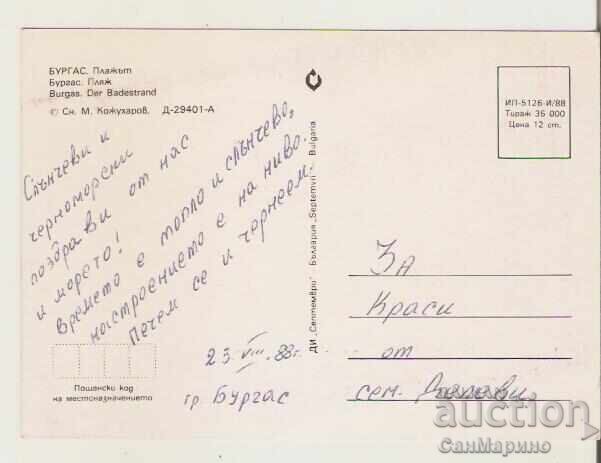 БУРГАС. Плажът
Бургас. Пляж
Burgas. Der Badestrand
© Сн. М. Кожухаров, Д-29401-А
ИП-5126-И/88
Тираж 35 000
Цена 12 ст.
ДИ „Септември" - България „Septemvri" - Bulgaria
Слънчеви и
черноморски
поздрави от нас
и морето!
Времето е топло и слънчево,
настроението е на ниво.
Печем се и чернеем.
23. VIII. 88 г.
гр. Бургас
Пощенски код
на местоназначението
За
Краси
от
сем.
auction
СанМарино